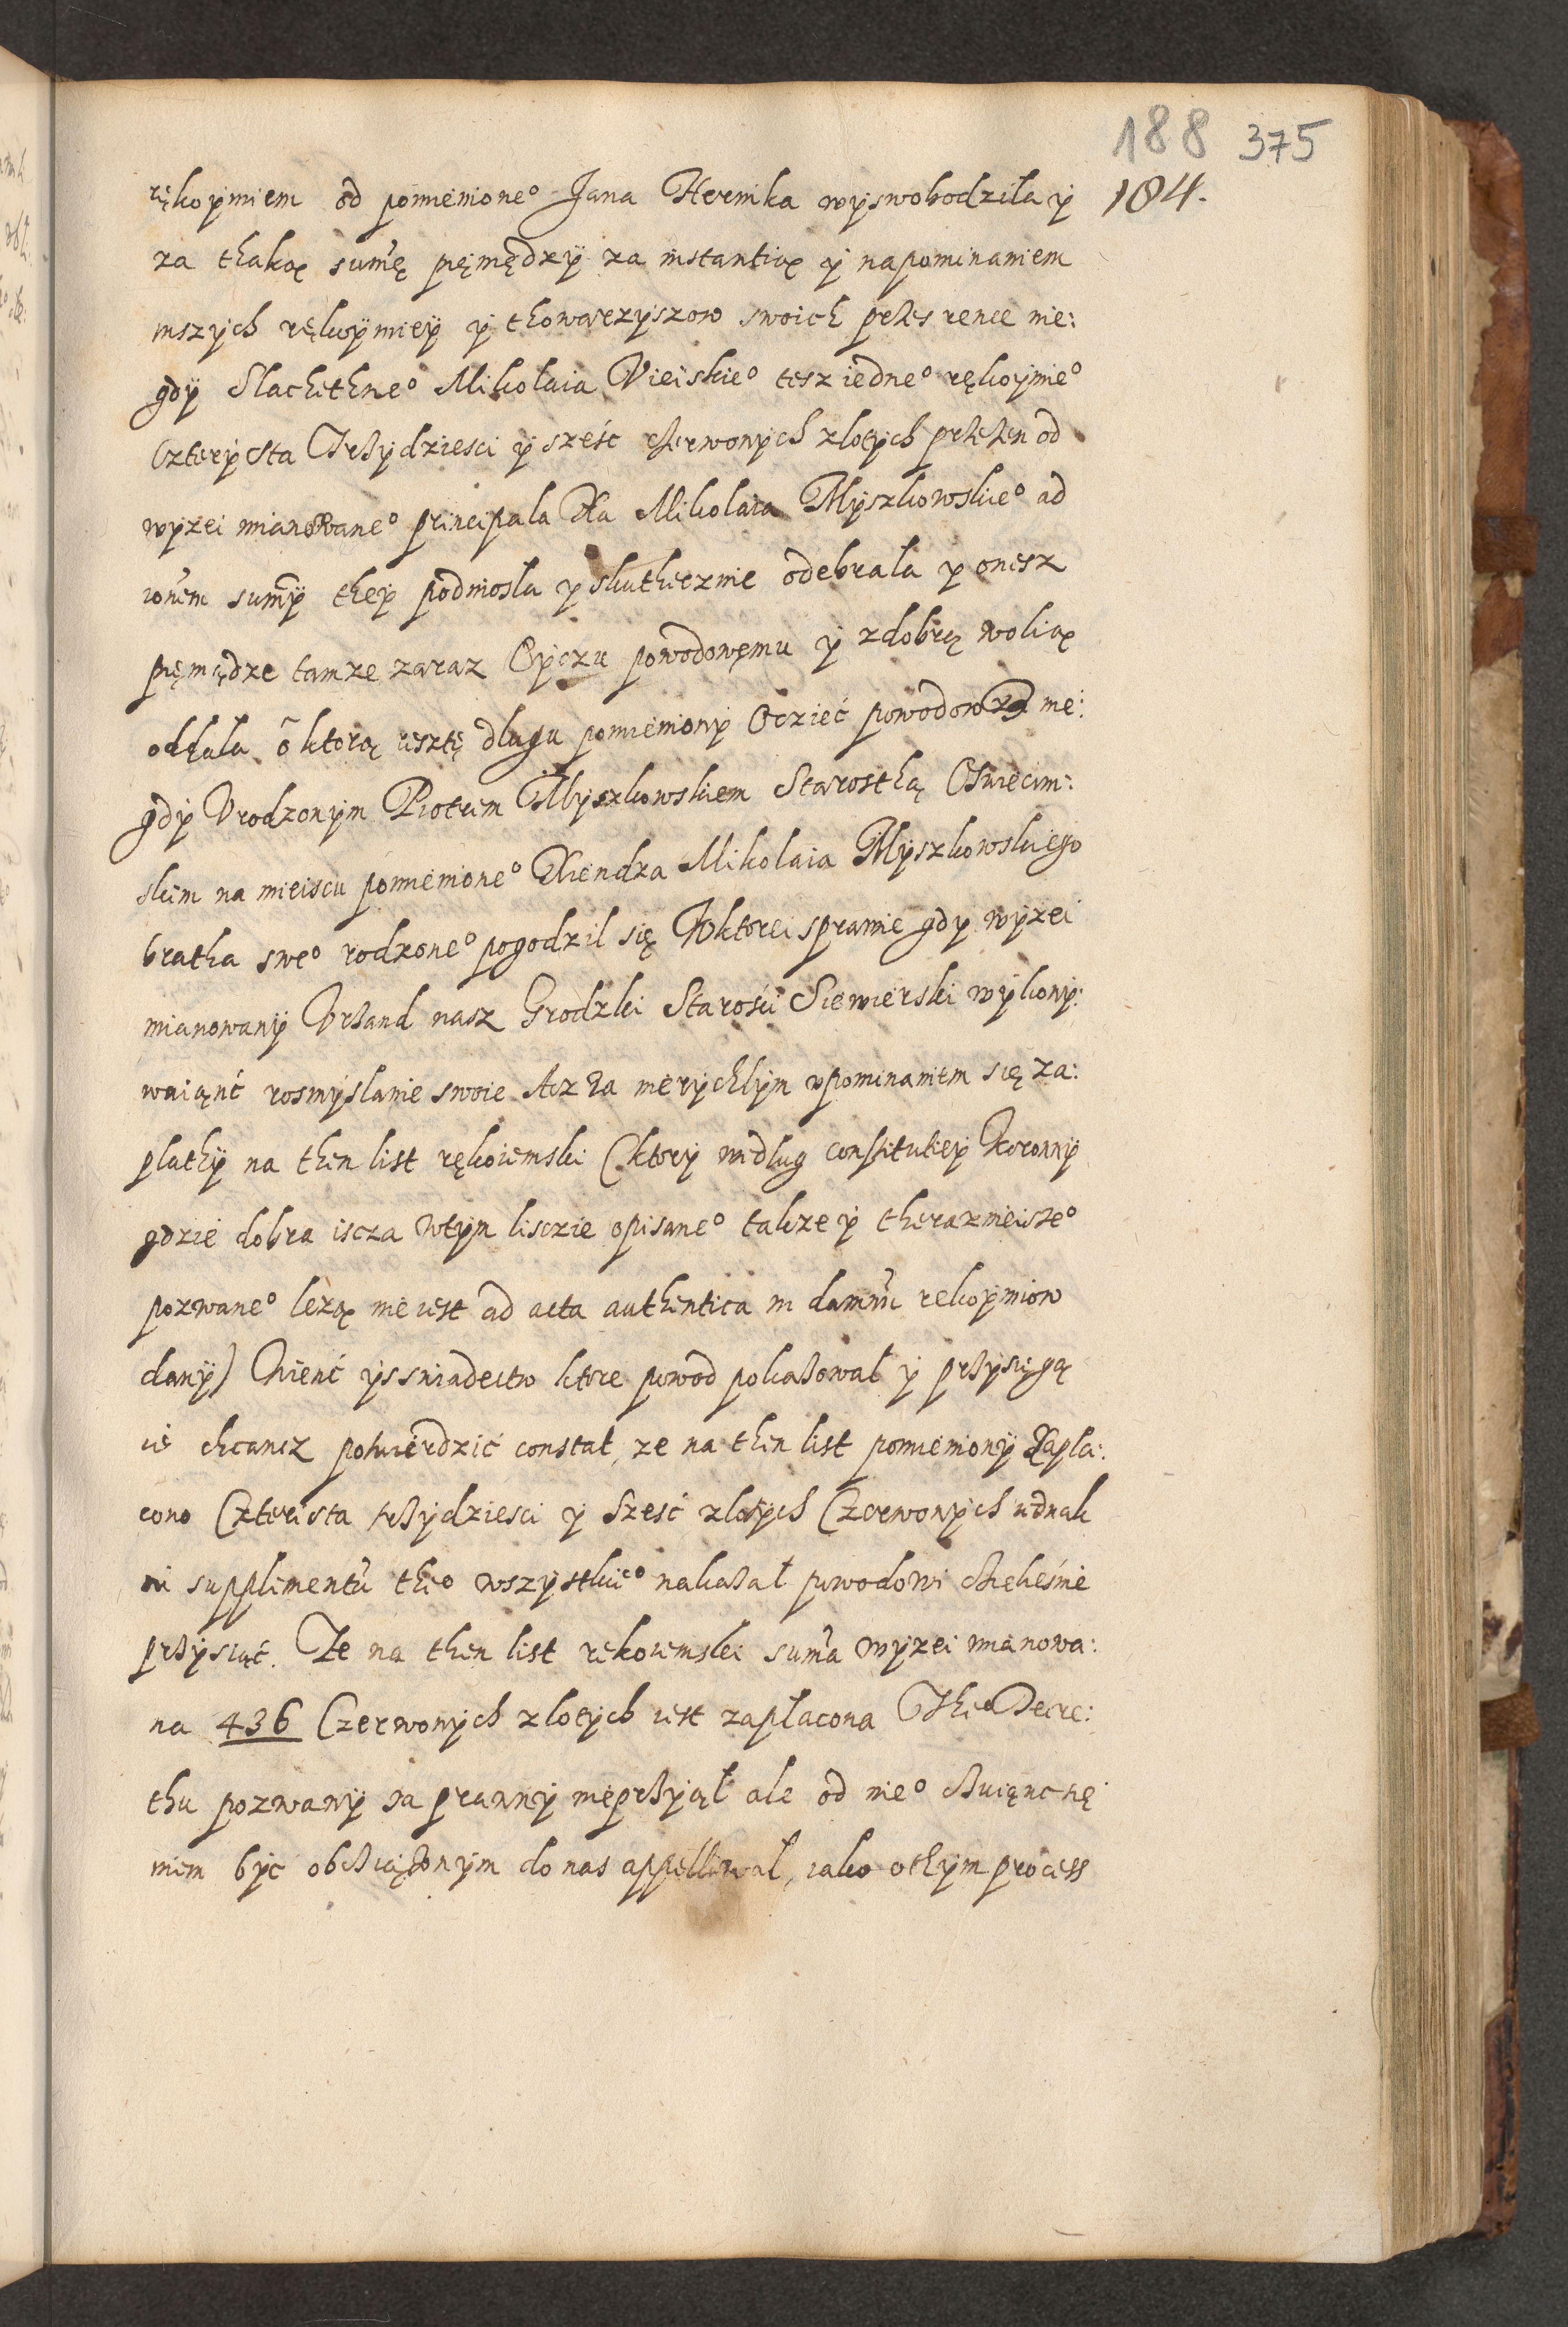 188 375
184.
rękoymiem od pomienione° Jana Hermka wyswobodziła y
za thaką sum̃ę pięniędzy za instantią y napominaniem
inszych rękoymiey y thowarzyszow swoich przes rence nie:
gdy Slachethne° Mikołaia Vieiskie° tesz iedne° rękoymie°
Czterysta Trzydziesci y sześc czerwonych zlotych przezen od
wyzei mianowane° principala Xa Mikolaia Myszkowskie° ad
ronem sum̃y they podniosla y skuthecznie odebrala y onesz
pięniądze tamze zaraz Oyczu powodowemu y z dobrą wolią
oddala o ktorą resztę dlugu pomieniony Ocziec powodow nie:
gdy Vrodzonym Piotrem Myszkowskiem Starosthą Oswiecim:
skim na mieiscu pomienione° Xiendza Mikolaia Myszkowskiego
bratha swe° rodzone° pogodzil się W ktorei sprawie gdy wyzei
mianowany Vrzand nasz Grodzki Starości Siewierski wykony:
waiąnć rosmyslanie swoie Acz za nierychlym vpominaniem się za:
plathy na then list rękoiemski (ktory wedlug constitutiey Koronny
gdzie dobra iscza w tym lisczie opisane° takze y theraznieisze°
pozwane° lezą nie iest ad acta authentica in damnũ rekoymiow
dany) Wienć ys sniadectw ktore powod pokazował y przysięgą
ie chcancz potwierdzić constat, ze na then list pomieniony Zapla:
cono Czterista trzydziesci y szesć zlotych Czerwonych iednak
in supplimentũ the° wszystkie° nakazał powodowi cielesnie
przysiąć. Ze na then list rekoiemski sum̃a wyzei mianowa:
na 436 Czerwonych zlotych iest zapłacona The° Decre:
thu pozwany za prawny nieprzyiął ale od nie° czuiąnc się
niem być obcziązonym do nas appellował, iako o thym process